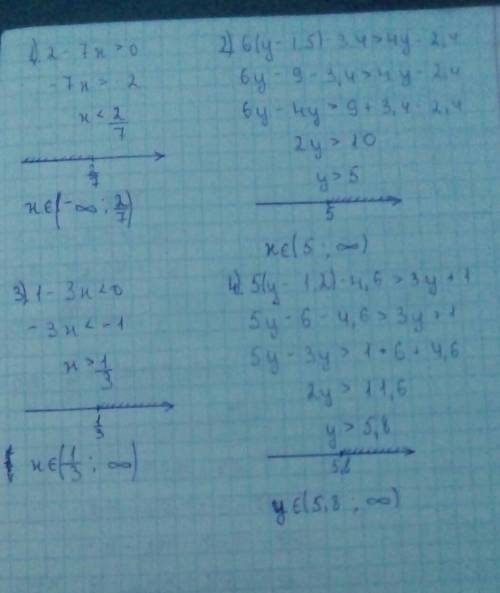 1) 2 - 7x > 0
-7x > 2
x < 2/7
2/7
x∈(-∞; 2/7)
2) 6(y - 1,5) - 3,4 > 4y - 2,4
6y - 9 - 3,4 > 4y - 2,4
6y - 4y > 9 + 3,4 - 2,4
2y > 10
y > 5
5
x∈(5; ∞)
3) 1 - 3x < 0
-3x < -1
x > 1/3
1/3
x∈(1/3; ∞)
4) 5(y - 1,2) - 4,6 > 3y + 1
5y - 6 - 4,6 > 3y + 1
5y - 3y > 1 + 6 + 4,6
2y > 11,6
y > 5,8
5,8
y∈(5,8; ∞)